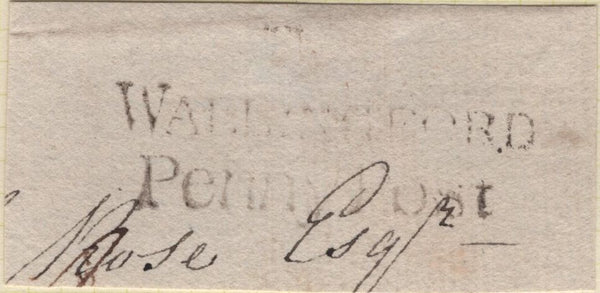 WALLINGFORD
Penny Post
Rose Esqr